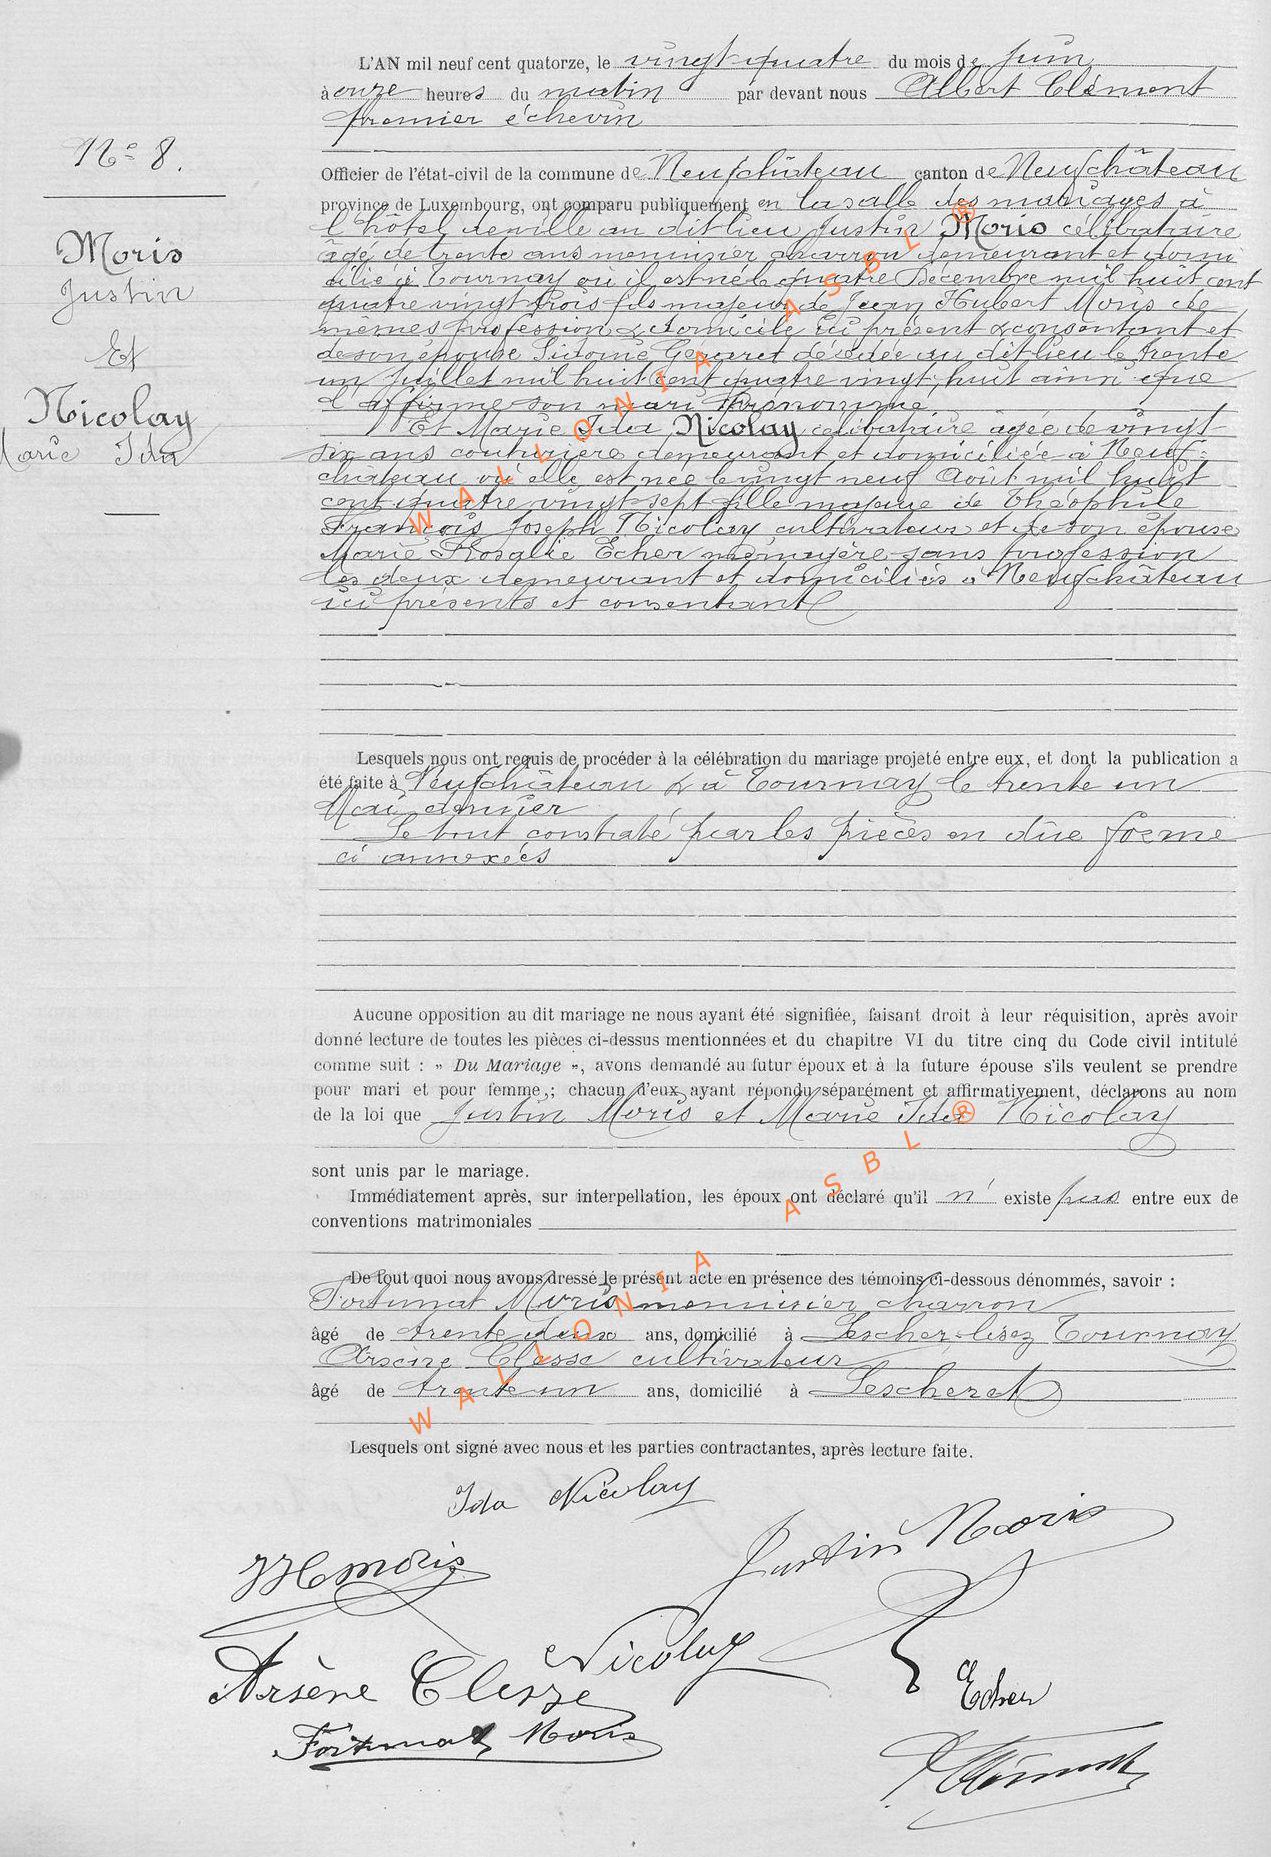 L'AN mil neuf cent quatorze, le vingt-quatre du mois de Juin
à onze heures du matin par devant nous Albert Clément
premier échevin
N° 8.
Officier de l'état-civil de la commune de Neufchâteau canton de Neufchâteau
province de Luxembourg, ont comparu publiquement en la salle des mariages à
l'hôtel de ville au dit lieu Justin Moris célibataire
âgé de trente ans menuisier charron demeurant et domi
cilié à Tournay où il est né le quatre Décembre mil huit cent
quatre vingt trois fils majeur de Jean Hubert Moris de
mêmes profession & domicile ici présent & consentant et
de son épouse Sidonie Gerard décédée au dit lieu le trente
un Juillet mil huit cent quatre vingt huit ainsi que
l'affirme son mari prénommé
Et Marie Ida Nicolay célibataire âgée de vingt
six ans couturière demeurant et domiciliée à Neuf-
château où elle est née le vingt neuf Août mil huit
cent quatre vingt sept fille majeure de Théophile
François Joseph Nicolay cultivateur et de son épouse
Marie Rosalie Echer ménagère sans profession
les deux demeurant et domiciliés à Neufchâteau
ici présents et consentant
Moris
Justin
Et
Nicolay
Marie Ida
Lesquels nous ont requis de procéder à la célébration du mariage projeté entre eux, et dont la publication a
été faite à Neufchâteau & à Tournay le trente un
Mai dernier
Le tout constaté par les pièces en dûe forme
ci annexées
Aucune opposition au dit mariage ne nous ayant été signifiée, faisant droit à leur réquisition, après avoir
donné lecture de toutes les pièces ci-dessus mentionnées et du chapitre VI du titre cinq du Code civil intitulé
comme suit : „ Du Mariage „, avons demandé au futur époux et à la future épouse s'ils veulent se prendre
pour mari et pour femme,; chacun d'eux ayant répondu séparément et affirmativement, déclarons au nom
de la loi que Justin Moris et Marie Ida Nicolay
sont unis par le mariage.
Immédiatement après, sur interpellation, les époux ont déclaré qu'il n' existe pas entre eux de
conventions matrimoniales
De tout quoi nous avons dressé le présent acte en présence des témoins ci-dessous dénommés, savoir :
Fortunat Moris menuisier charron
âgé de trente deux ans, domicilié à Tournay
Arsène Clesse cultivateur
âgé de trente un ans, domicilié à Lescheret
Lesquels ont signé avec nous et les parties contractantes, après lecture faite.
Ida Nicolay
Justin Moris
JH Moris
Nicolay
Arsène Clesse
Echer
Fortunat Moris
Clément
WALLONIA ASBL ®
WALLONIA ASBL ®